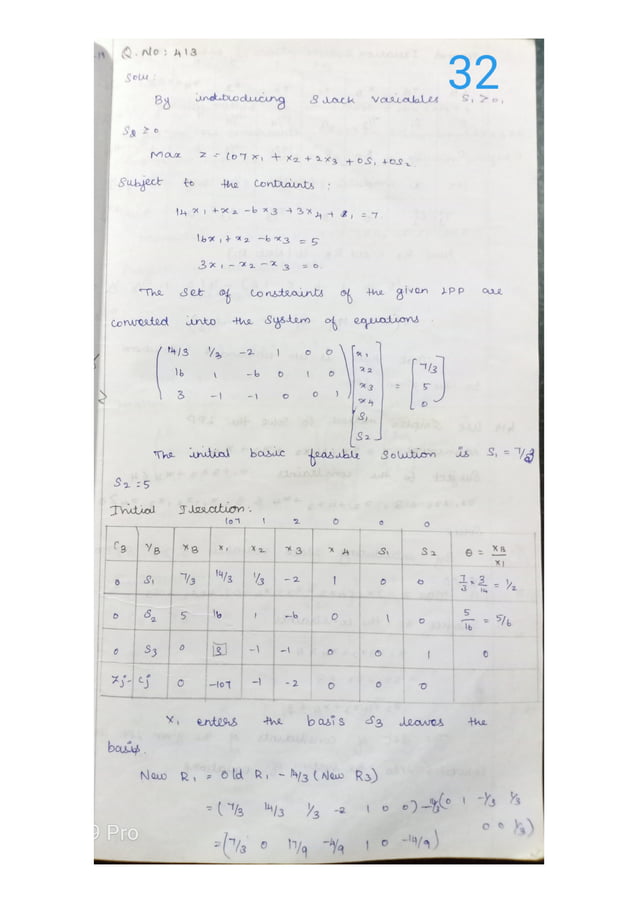 Q. No : 413
32
Solu :
By indtroducing Slack variables S₁ ≥ 0,
S₂ ≥ 0
Max Z = 107x₁ + x₂ + 2x₃ + 0S₁ + 0S₂
Subject to the Contraints :
14x₁ + x₂ - 6x₃ + 3x₄ + S₁ = 7
16x₁ + x₂ - 6x₃ = 5
3x₁ - x₂ - x₃ = 0.
The set of constraints of the given LPP are
converted into the system of equations.
14/3 1/3 -2 1 0 0 x₁ 7/3
16 1 -6 0 1 0 x₂ = 5
3 -1 -1 0 0 1 x₃ 0
x₄
S₁
S₂
The initial basic feasible solution is S₁ = 7/3
S₂ = 5
Initial Iteration.
107 1 2 0 0 0
CB YB XB x₁ x₂ x₃ x₄ S₁ S₂ θ = XB/x1
0 S₁ 7/3 14/3 1/3 -2 1 0 0 7/3 × 3/14 = 1/2
0 S₂ 5 16 1 -6 0 1 0 5/16 = 5/6
0 S₃ 0 3 -1 -1 0 0 1 0
Zj - Cj 0 -107 -1 -2 0 0 0
x₁ enters the basis S₃ leaves the
basis.
New R₁ = Old R₁ - 14/3 (New R₃)
= (7/3 14/3 1/3 -2 1 0 0) - 14/3 (0 1 -1/3 1/3
0 0 1/3)
= [7/3 0 17/9 -4/9 1 0 -14/9)
9 Pro